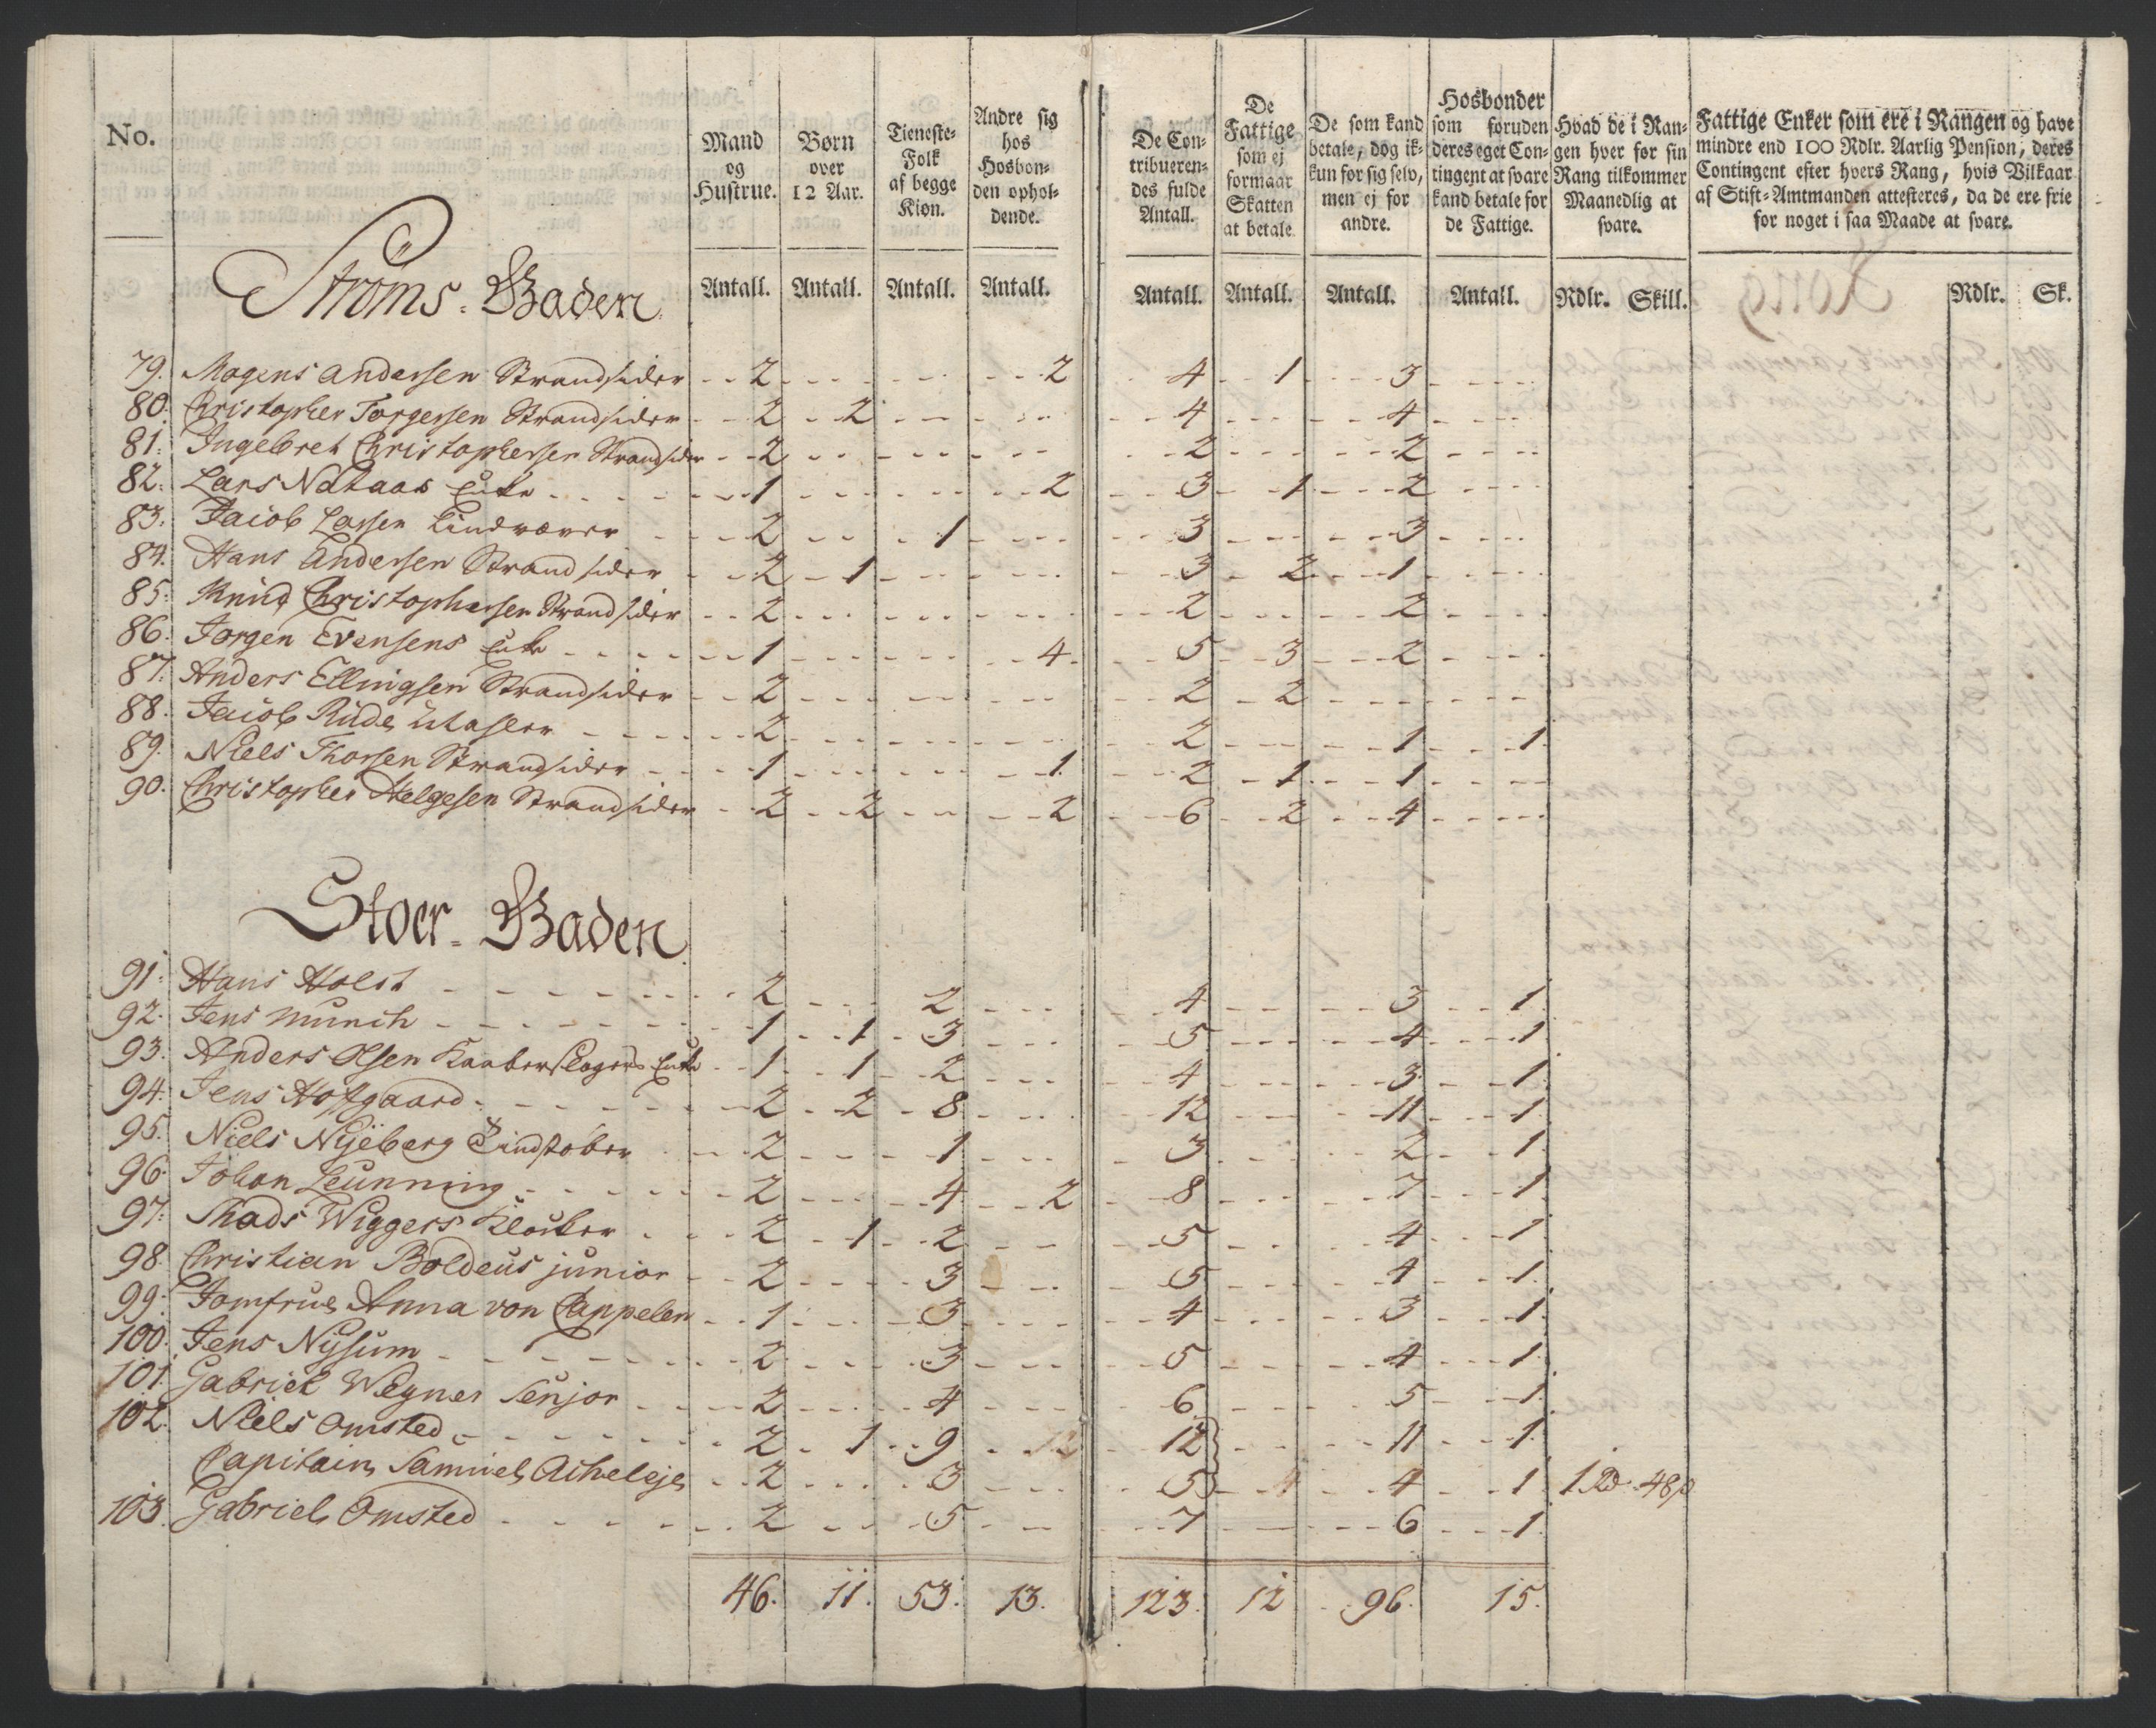 No.
Mand og Hustrue.
Børn over 12 Aar.
Tieneste-Folk af begge Kiøn.
Andre sig hos Hosbonden ophol-dende.
De Con-tribueren-des fulde Antall.
De Fattige som ej formaar Skatten at betale
De som kand betale, dog ik-kun for sig selv, men ej for andre.
Hosbonder som foruden deres eget Con-tingent at svare kand betale for de Fattige.
Hvad de i Ran-gen hver for sin Rang tilkommer Maanedlig at svare.
Fattige Enker som ere i Rangen og have mindre end 100 Rdlr. Aarlig Pension, deres Contingent efter hvers Rang, hvis Vilkaar af Stift-Amtmanden attesteres, da de ere frie for noget i saa Maade at svare.
Ströms-Gaden
Antall. Antall. Antall. Antall. Antall. Antall. Antall. Antall. Rdlr. Skill. Rdlr. Sk.
79. Mogens Andersen Strandsider 2 2 4 1 3
80. Christopher Torgersen Strandsider 2 2 4 4
81. Ingebret Christophersen Strandsider 2 2 2
82. Lars Nataas Enke 1 2 3 1 2
83. Jacob Larsen 2 1 3 3
84. Hans Andersen Strandsider 2 1 3 2 1
85. Knud Christophersen Strandsider 2 2 2
86. Jørgen Evensens Enke 1 4 5 3 2
87. Anders Ellingsen Strandsider 2 2 2
88. Jacob Rude 2 2 1 1
89. Niels Thorsen Strandsider 1 1 2 1 1
90. Christopher Helgesen Strandsider 2 2 2 6 2 4
Stoer-Gaden
91. Hans Holst 2 2 4 3 1
92. Jens Munch 1 1 3 5 4 1
93. Anders Olsen Kaaberslagers Enke 1 1 2 4 3 1
94. Jens Hofgaard 2 2 8 12 11 1
95. Niels Nyeberg Tindstøber 2 1 3 2 1
96. Johan Leunning 2 4 2 8 7 1
97. Mads Wiggers Klocker 2 1 2 5 4 1
98. Christian Boldeus junior 2 3 5 4 1
99. Jomfrue Anna von Cappelen 1 3 4 3 1
100. Jens Nysum 2 3 5 4 1
101. Gabriel Wegner Senjor 2 4 6 5 1
102. Niels Omsted 2 1 9 12 11 1
Capitain Samuel Acheleje 2 3 5 4 1 1 Rd 48 s
103. Gabriel Omsted 2 5 7 6 1
46. 11. 53. 13. 123. 12 96. 15.